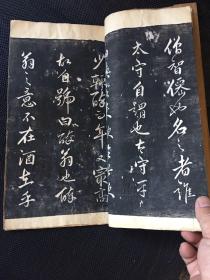 僧智僊也名之者誰
太守自謂也太守与
少輒醉而年又最高
故自號曰醉翁也醉
翁之意不在酒在乎